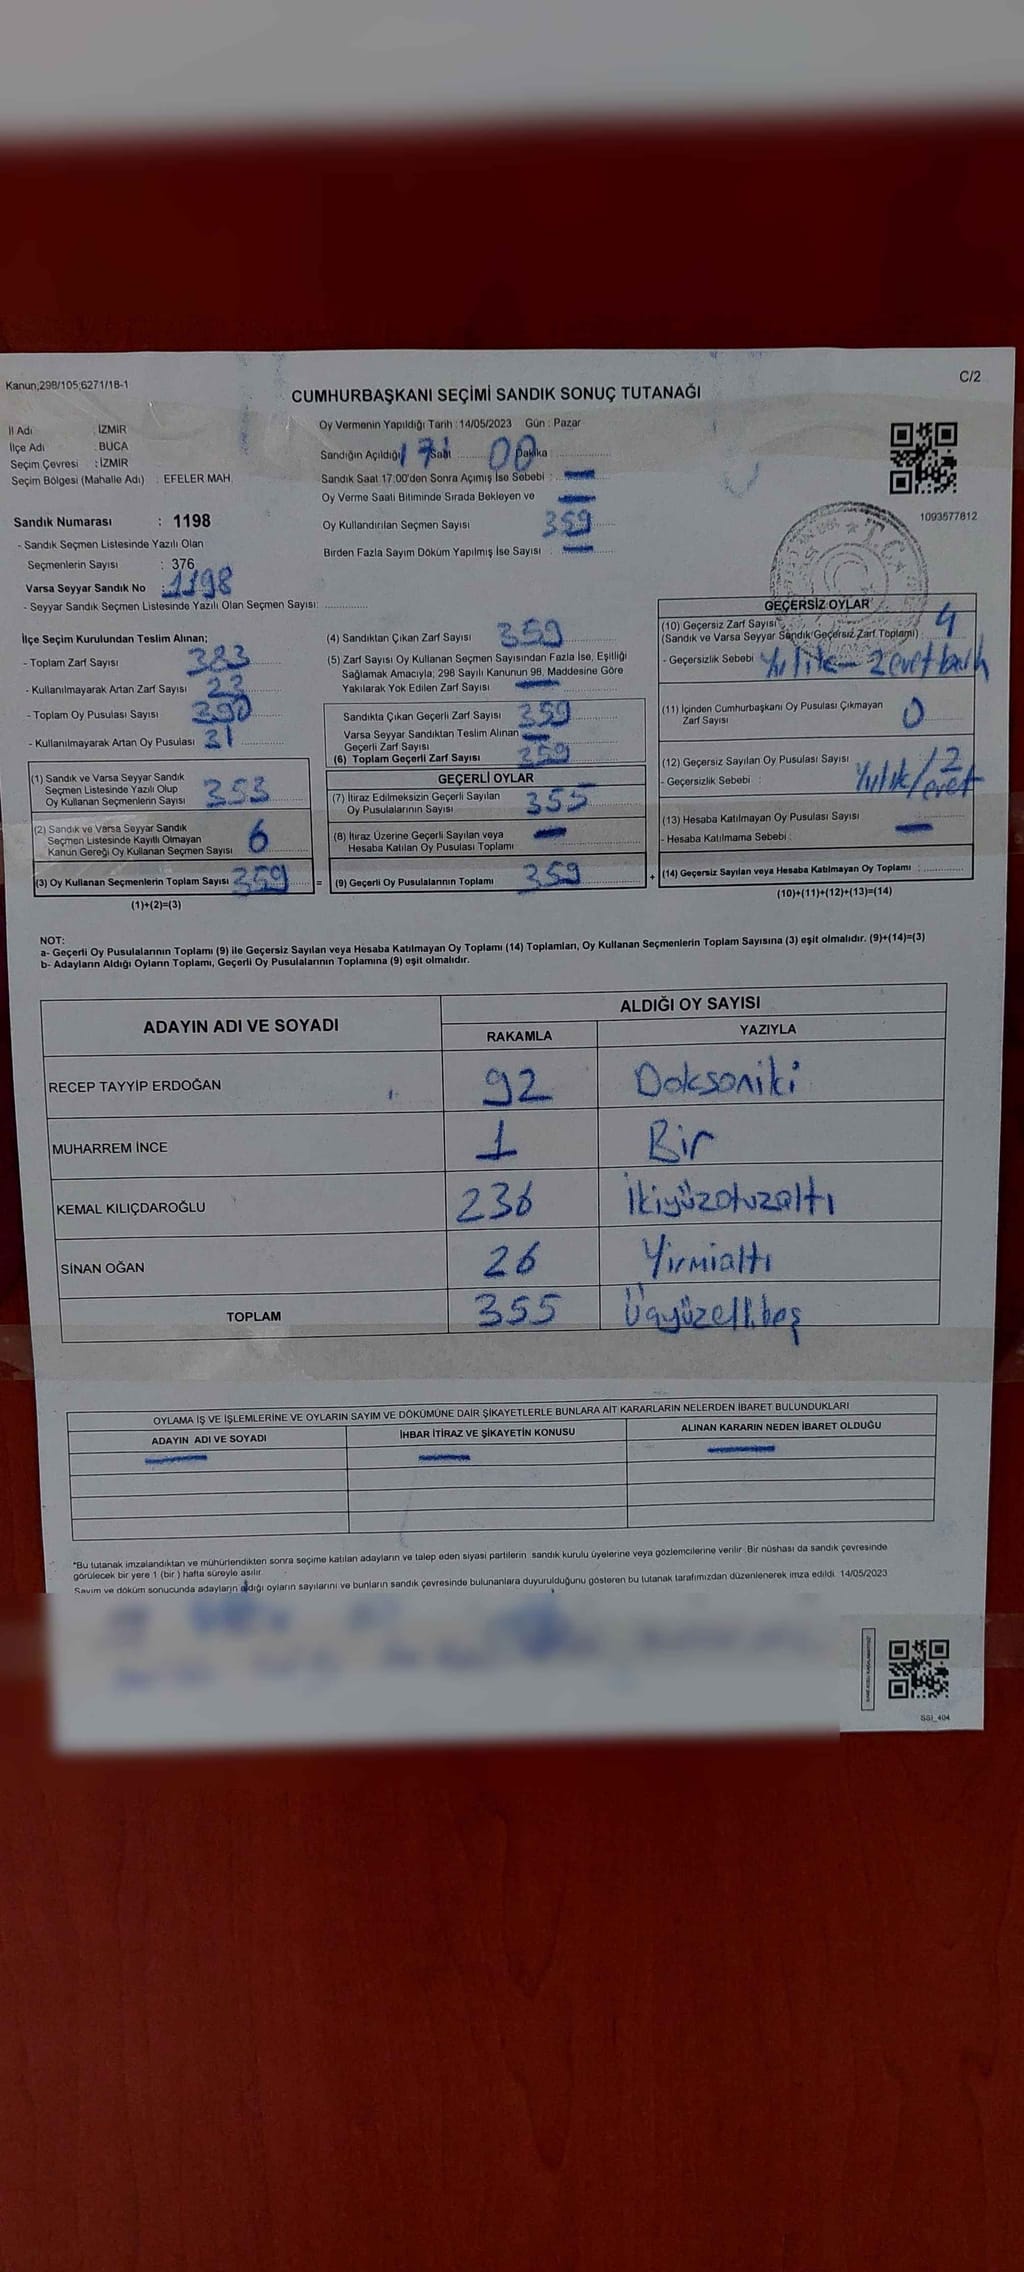 Kanun;298/105;6271/18-1
C/2
CUMHURBAŞKANI SEÇİMİ SANDIK SONUÇ TUTANAĞI
İl Adı : İZMİR
İlçe Adı : BUCA
Seçim Çevresi : İZMİR
Seçim Bölgesi (Mahalle Adı) : EFELER MAH.
Sandık Numarası : 1198
- Sandık Seçmen Listesinde Yazılı Olan
Seçmenlerin Sayısı : 376
Varsa Seyyar Sandık No : 1198
- Seyyar Sandık Seçmen Listesinde Yazılı Olan Seçmen Sayısı: ..............
Oy Vermenin Yapıldığı Tarih : 14/05/2023 Gün : Pazar
Sandığın Açıldığı 17 Saat 00 Dakika
Sandık Saat 17:00'den Sonra Açımış İse Sebebi : —
Oy Verme Saati Bitiminde Sırada Bekleyen ve
Oy Kullandırılan Seçmen Sayısı 359
Birden Fazla Sayım Döküm Yapılmış İse Sayısı : —
1093577812
İlçe Seçim Kurulundan Teslim Alınan;
- Toplam Zarf Sayısı 383
- Kullanılmayarak Artan Zarf Sayısı 23
- Toplam Oy Pusulası Sayısı 390
- Kullanılmayarak Artan Oy Pusulası 31
(1) Sandık ve Varsa Seyyar Sandık
Seçmen Listesinde Yazılı Olup
Oy Kullanan Seçmenlerin Sayısı 353
(2) Sandık ve Varsa Seyyar Sandık
Seçmen Listesinde Kayıtlı Olmayan
Kanun Gereği Oy Kullanan Seçmen Sayısı 6
(3) Oy Kullanan Seçmenlerin Toplam Sayısı 359 =
(1)+(2)=(3)
(4) Sandıktan Çıkan Zarf Sayısı 359
(5) Zarf Sayısı Oy Kullanan Seçmen Sayısından Fazla İse, Eşitliği
Sağlamak Amacıyla; 298 Sayılı Kanunun 98. Maddesine Göre
Yakılarak Yok Edilen Zarf Sayısı —
Sandıkta Çıkan Geçerli Zarf Sayısı 359
Varsa Seyyar Sandıktan Teslim Alınan —
Geçerli Zarf Sayısı
(6) Toplam Geçerli Zarf Sayısı 359
GEÇERLİ OYLAR
(7) İtiraz Edilmeksizin Geçerli Sayılan
Oy Pusulalarının Sayısı 355
(8) İtiraz Üzerine Geçerli Sayılan veya
Hesaba Katılan Oy Pusulası Toplamı —
(9) Geçerli Oy Pusulalarının Toplamı 359 +
GEÇERSİZ OYLAR
(10) Geçersiz Zarf Sayısı 4
(Sandık ve Varsa Seyyar Sandık Geçersiz Zarf Toplamı)
- Geçersizlik Sebebi 2 evet
(11) İçinden Cumhurbaşkanı Oy Pusulası Çıkmayan
Zarf Sayısı 0
(12) Geçersiz Sayılan Oy Pusulası Sayısı 2
- Geçersizlik Sebebi : evet
(13) Hesaba Katılmayan Oy Pusulası Sayısı —
- Hesaba Katılmama Sebebi :
(14) Geçersiz Sayılan veya Hesaba Katılmayan Oy Toplamı : ............
(10)+(11)+(12)+(13)=(14)
NOT:
a- Geçerli Oy Pusulalarının Toplamı (9) ile Geçersiz Sayılan veya Hesaba Katılmayan Oy Toplamı (14) Toplamları, Oy Kullanan Seçmenlerin Toplam Sayısına (3) eşit olmalıdır. (9)+(14)=(3)
b- Adayların Aldığı Oyların Toplamı, Geçerli Oy Pusulalarının Toplamına (9) eşit olmalıdır.
ADAYIN ADI VE SOYADI
ALDIĞI OY SAYISI
RAKAMLA YAZIYLA
RECEP TAYYİP ERDOĞAN 92 Doksaniki
MUHARREM İNCE 1 Bir
KEMAL KILIÇDAROĞLU 236 İkiyüzotuzaltı
SİNAN OĞAN 26 Yirmialtı
TOPLAM 355 Üçyüzellibeş
OYLAMA İŞ VE İŞLEMLERİNE VE OYLARIN SAYIM VE DÖKÜMÜNE DAİR ŞİKAYETLERLE BUNLARA AİT KARARLARIN NELERDEN İBARET BULUNDUKLARI
ADAYIN ADI VE SOYADI İHBAR İTİRAZ VE ŞİKAYETİN KONUSU ALINAN KARARIN NEDEN İBARET OLDUĞU
— — —
*Bu tutanak imzalandıktan ve mühürlendikten sonra seçime katılan adayların ve talep eden siyasi partilerin sandık kurulu üyelerine veya gözlemcilerine verilir. Bir nüshası da sandık çevresinde
görülecek bir yere 1 (bir ) hafta süreyle asılır.
Sayım ve döküm sonucunda adayların aldığı oyların sayılarını ve bunların sandık çevresinde bulunanlara duyurulduğunu gösteren bu tutanak tarafımızdan düzenlenerek imza edildi. 14/05/2023
SSI_404